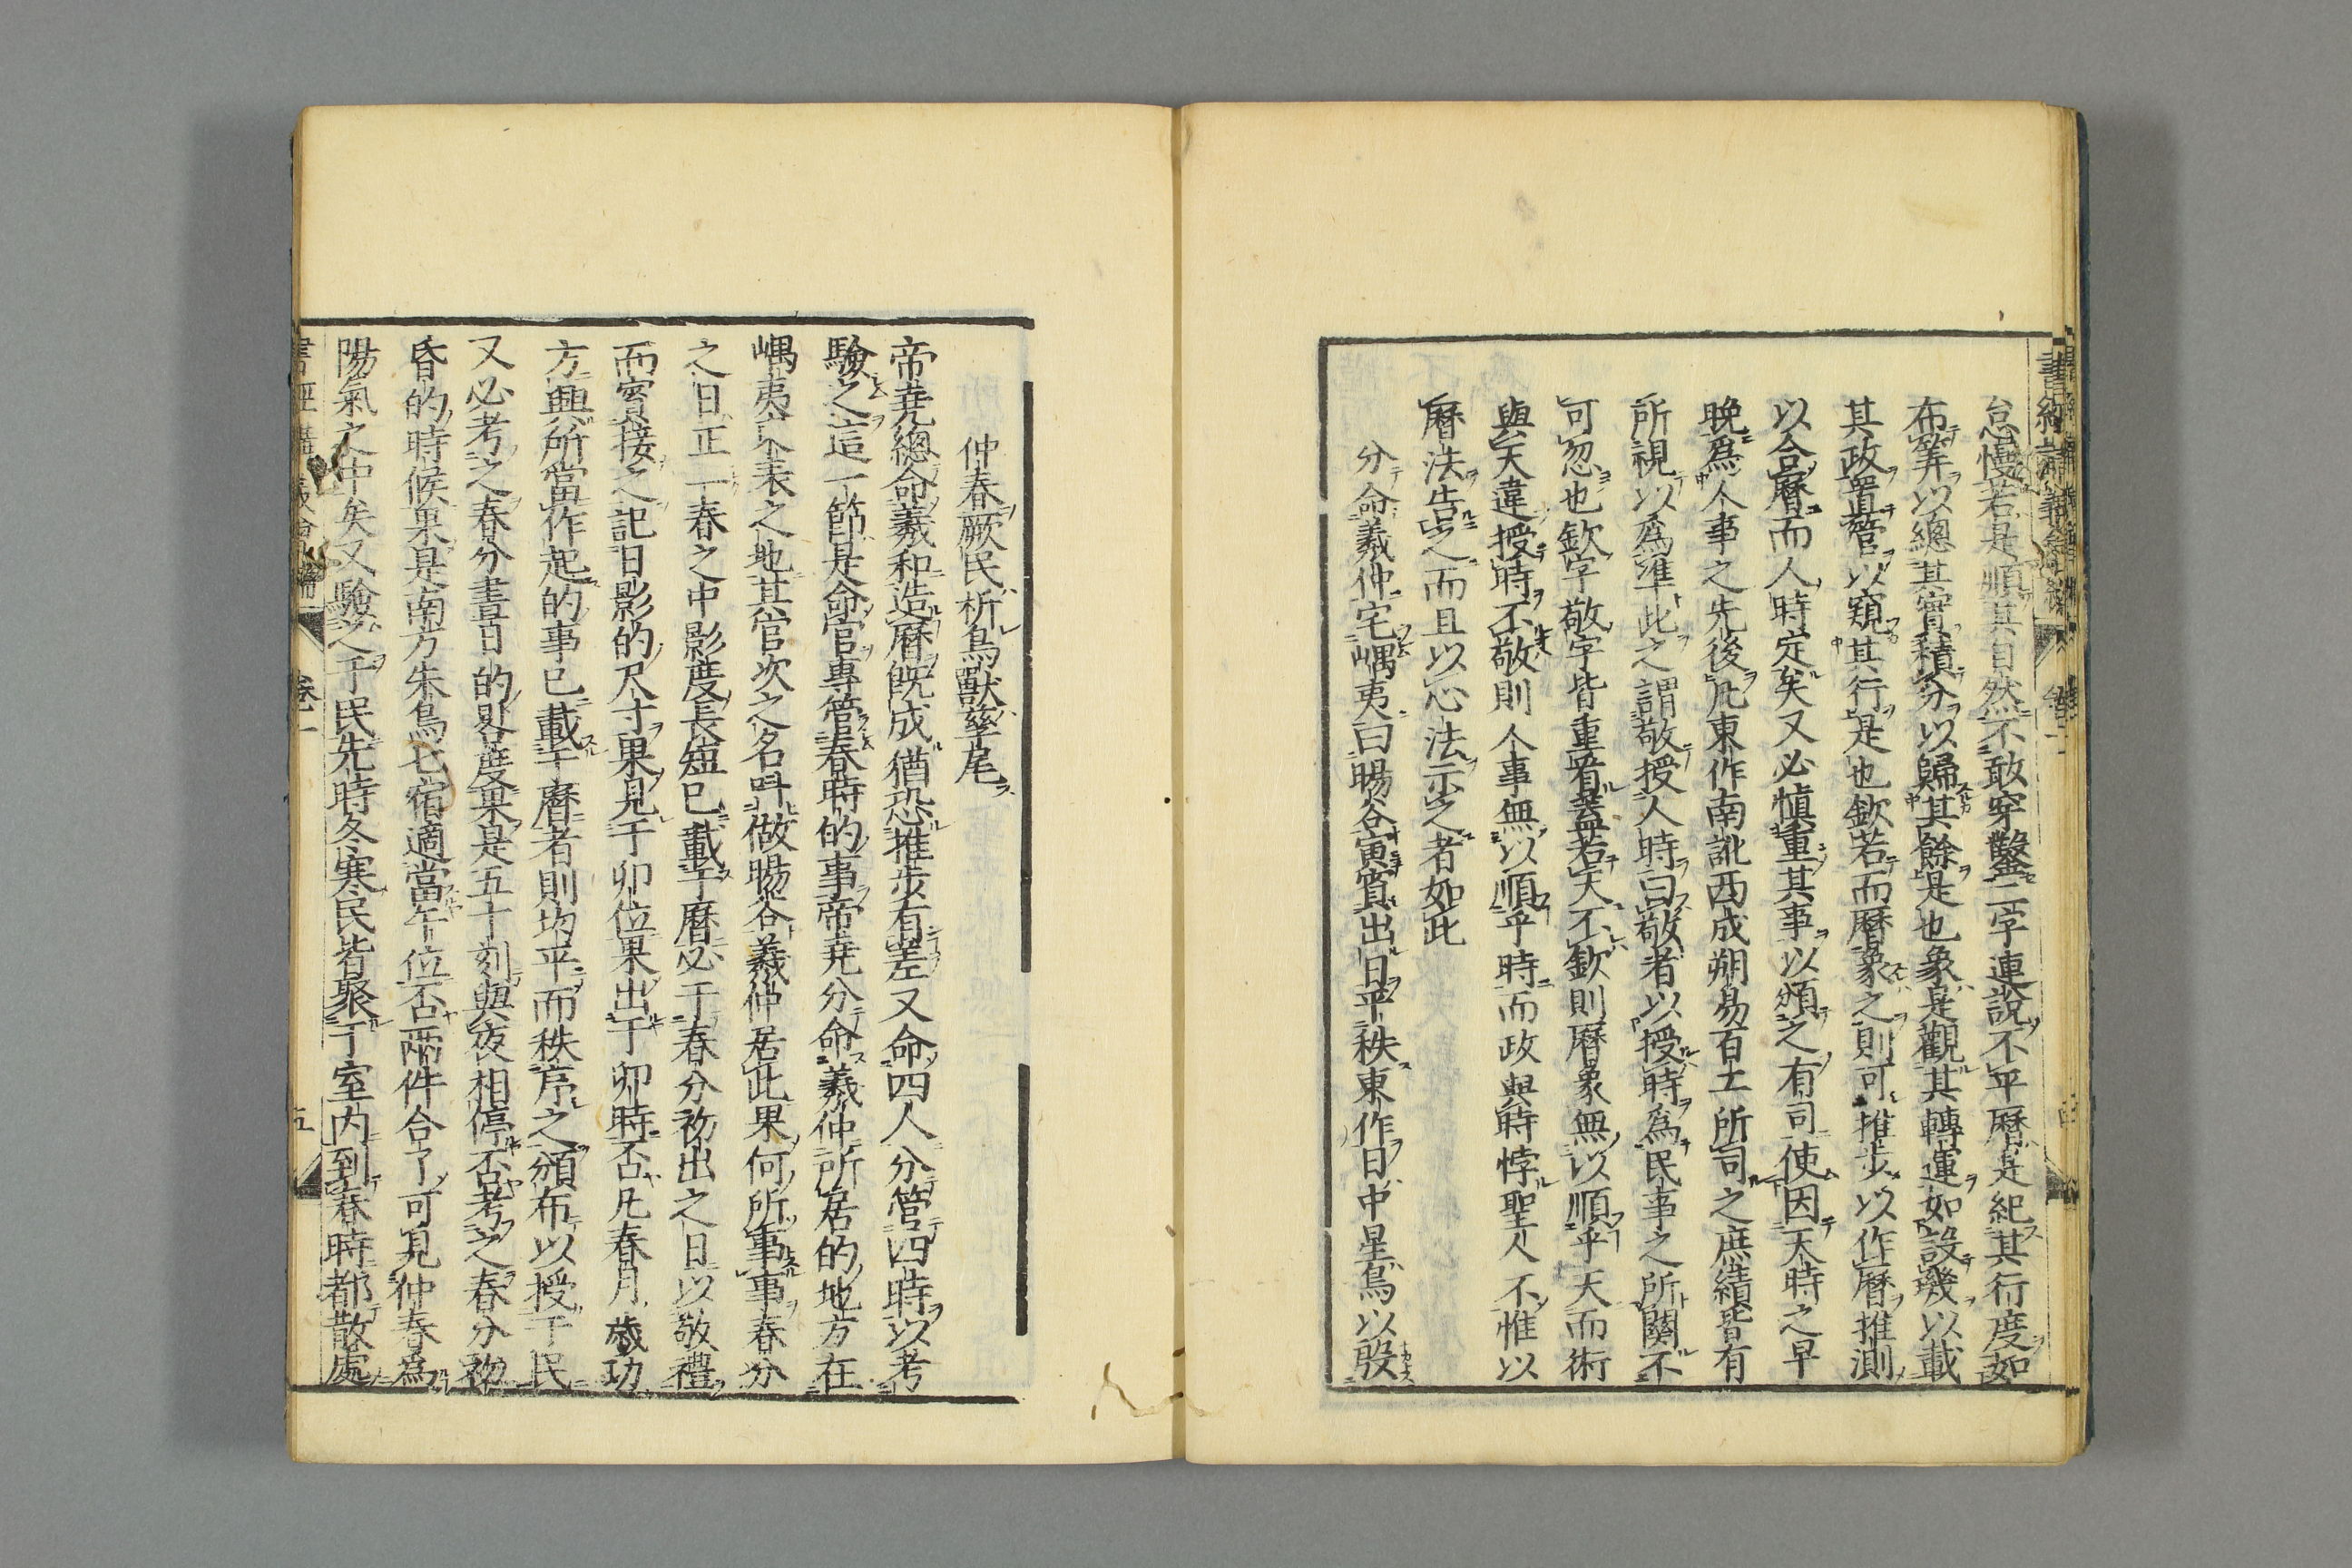 怠慢若是順其自然不敢穿鑿二字連說不平曆是紀其行度如
布筭以總其實積分以歸其餘是也象是觀其轉運如設璣以載
其政置管以窺其行是也欽若而曆象之則可推步以作曆推測
以合曆而人時定矣又必慎重其事以頒之有司使因天時之早
晚爲人事之先後凡東作南訛西成朔易百工所司之庶績皆有
所視以爲準此之謂敬授人時曰敬者以授時爲民事之所關不
可忽也欽字敬字皆重看蓋若天不欽則曆象無以順乎天而術
與天違授時不敬則人事無以順乎時而政與時悖聖人不惟以
曆法告之而且以心法示之者如此
分命羲仲宅嵎夷曰暘谷寅賓出日平秩東作日中星鳥以殷
仲春厥民析鳥獸孳尾
帝堯總命羲和造曆既成猶恐推步有差又命四人分管四時以考
驗之這一節是命官專管春時的事帝堯分命羲仲所居的地方在
嵎夷東表之地其官次之名呌做暘谷羲仲居此果何所事事春分
之日正一春之中影度長短已載于曆必于春分初出之日以敬禮
而賓接之記日影的尺寸果見于卯位果出于卯時否凡春月歲功
方興所當作起的事已載于曆者則均平而秩序之頒布以授于民
又必考之春分晝日的晷度果是五十刻與夜相停否考之春分初
昏的時候果是南方朱鳥七宿適當午位否兩件合了可見仲春爲
陽氣之中矣又驗之于民先時冬寒民皆聚于室内到春時都散處
書經講義會編 卷一 五